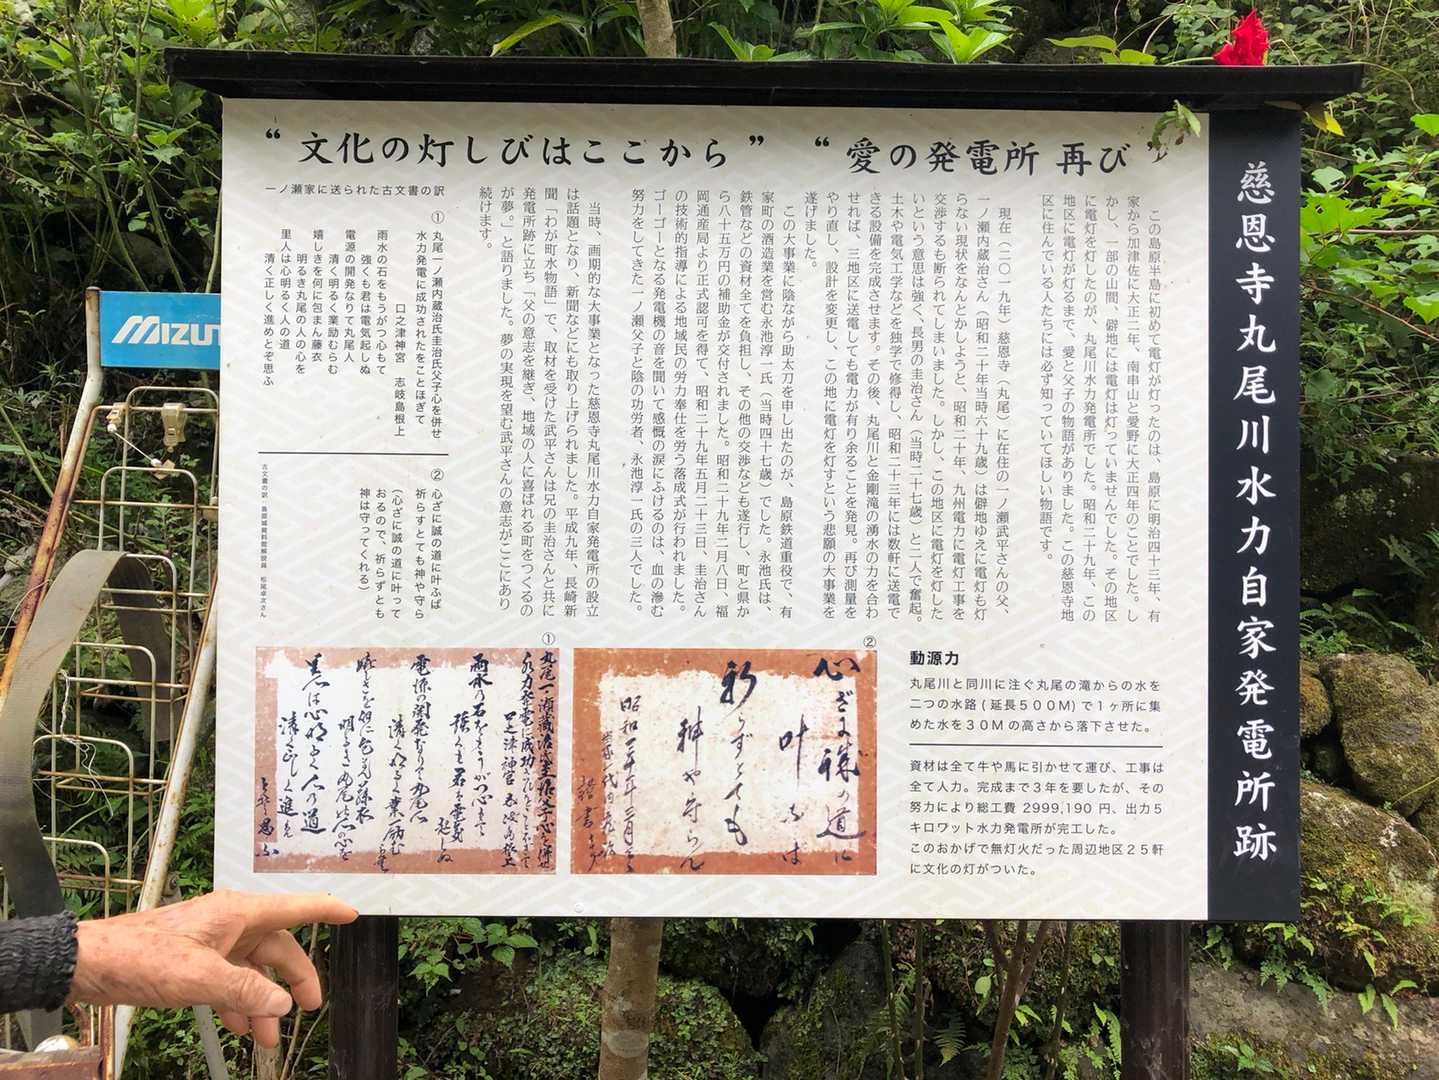 慈恩寺丸尾川水力自家発電所跡
“文化の灯しびはここから” “愛の発電所 再び”
この島原半島に初めて電灯が灯ったのは、島原に明治四十三年、有
家から加津佐に大正二年、南串山と愛野に大正四年のことでした。し
かし、一部の山間、僻地には電灯は灯っていませんでした。その地区
に電灯を灯したのが、丸尾川水力発電所でした。昭和二十九年、この
地区に電灯が灯るまで、愛と父子の物語がありました。この慈恩寺地
区に住んでいる人たちには必ず知っていてほしい物語です。
現在（二〇一九年）慈恩寺（丸尾）に在住の一ノ瀬武平さんの父、
一ノ瀬内蔵治さん（昭和二十年当時六十九歳）は僻地ゆえに電灯も灯
らない現状をなんとかしようと、昭和二十年、九州電力に電灯工事を
交渉するも断られてしまいました。しかし、この地区に電灯を灯した
いという意思は強く、長男の圭治さん（当時二十七歳）と二人で奮起。
土木や電気工学などを独学で修得し、昭和二十三年には数軒に送電で
きる設備を完成させます。その後、丸尾川と金剛滝の湧水の力を合わ
せれば、三地区に送電しても電力が有り余ることを発見。再び測量を
やり直し、設計を変更し、この地に電灯を灯すという悲願の大事業を
遂げました。
この大事業に陰ながら助太刀を申し出たのが、島原鉄道重役で、有
家町の酒造業を営む永池淳一氏（当時四十七歳）でした。永池氏は、
鉄管などの資材全てを負担し、その他の交渉なども遂行し、町と県か
ら八十五万円の補助金が交付されました。昭和二十九年二月八日、福
岡通産局より正式認可を得て、昭和二十九年五月二十三日、圭治さん
の技術的指導による地域民の労力奉仕を労う落成式が行われました。
ゴーゴーとなる発電機の音を聞いて感慨の涙にふけるのは、血の滲む
努力をしてきた一ノ瀬父子と陰の功労者、永池淳一氏の三人でした。
当時、画期的な大事業となった慈恩寺丸尾川水力自家発電所の設立
は話題となり、新聞などにも取り上げられました。平成九年、長崎新
聞「わが町水物語」で、取材を受けた武平さんは兄の圭治さんと共に
発電所跡に立ち「父の意志を継ぎ、地域の人に喜ばれる町をつくるの
が夢。」と語りました。夢の実現を望む武平さんの意志がここにあり
続けます。
一ノ瀬家に送られた古文書の訳
① 丸尾一ノ瀬内蔵治氏圭治氏父子心を併せ
水力発電に成功されたをことほぎて
口之津神宮 志岐島根上
雨水の石をもうがつ心もて
強くも君は電気起しぬ
電源の開発なりて丸尾人
清く明るく業励むらむ
嬉しきを何に包まん藤衣
明るき丸尾の人の心を
里人は心明るく人の道
清く正しく進めとぞ思ふ
② 心ざに誠の道に叶ふば
祈らずとても神や守ら
(心ざに誠の道に叶って
おるので、祈らずとも
神は守ってくれる)
古文書の訳：島原城資料館解説員 松尾卓次さん
①
丸尾一ノ瀬内蔵治氏圭治氏父子心を併せ
水力発電に成功されたをことほぎて
口之津神宮 志岐島根上
雨水の石をもうがつ心もて
強くも君は電気起しぬ
電源の開発なりて丸尾人
清く明るく業励むらむ
嬉しきを何に包まん藤衣
明るき丸尾の人の心を
里人は心明るく人の道
清く正しく進めと
②
心ざに誠の道に
叶ふば
祈らずとても
神や守らん
昭和三十年三月
動源力
丸尾川と同川に注ぐ丸尾の滝からの水を
二つの水路(延長５００Ｍ)で１ヶ所に集
めた水を３０Ｍの高さから落下させた。
資材は全て牛や馬に引かせて運び、工事は
全て人力。完成まで３年を要したが、その
努力により総工費 2999,190 円、出力５
キロワット水力発電所が完工した。
このおかげで無灯火だった周辺地区２５軒
に文化の灯がついた。
MIZU